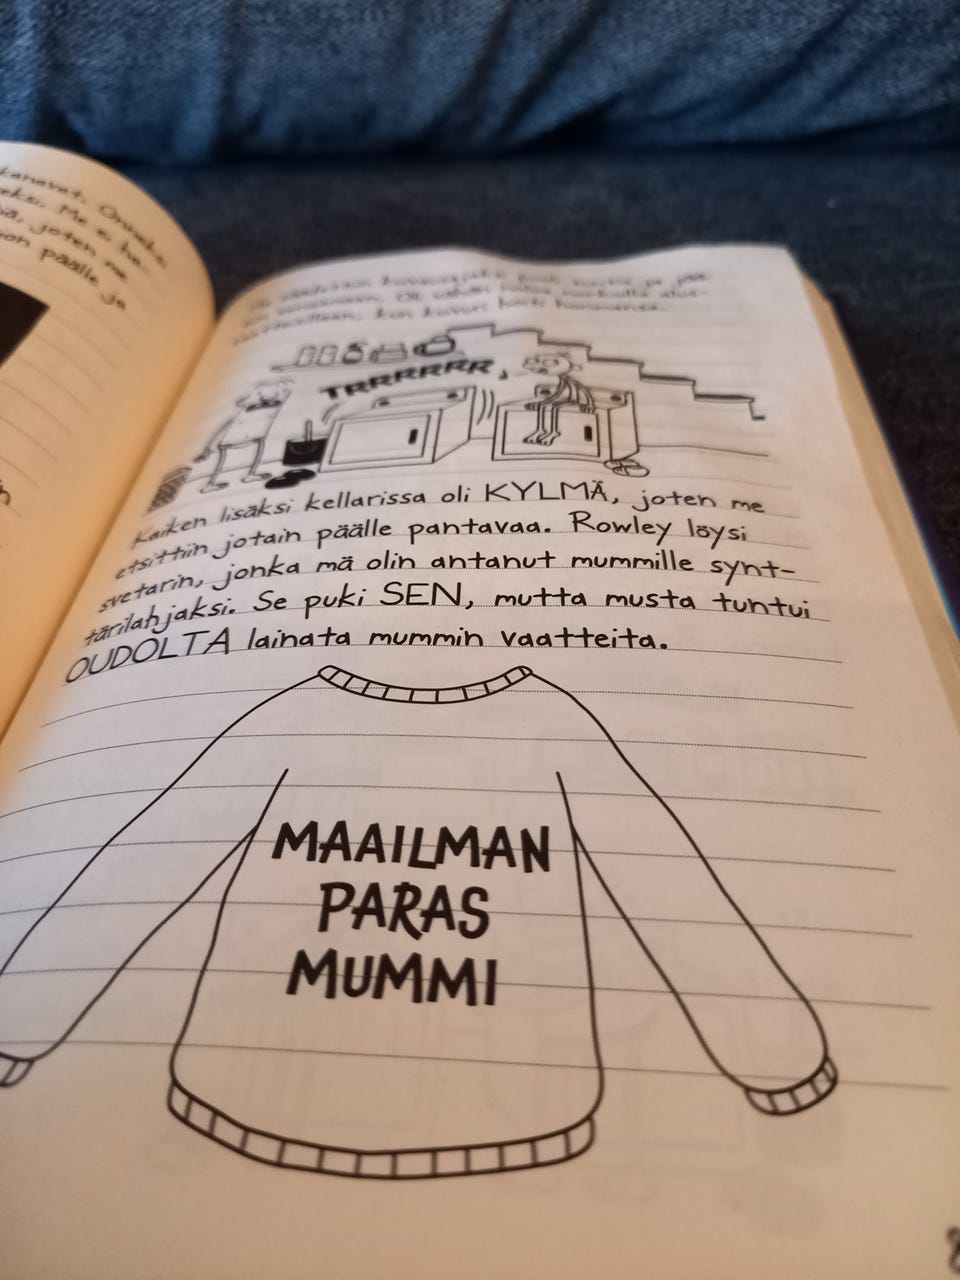 kanavat. Onneksi
Me ei
joten me
päälle ja
TRRRRRR
Kaiken lisäksi kellarissa oli KYLMÄ, joten me
etsittiin jotain päälle pantavaa. Rowley löysi
svetarin, jonka mä olin antanut mummille synt-
tärilahjaksi. Se puki SEN, mutta musta tuntui
OUDOLTA lainata mummin vaatteita.
MAAILMAN
PARAS
MUMMI